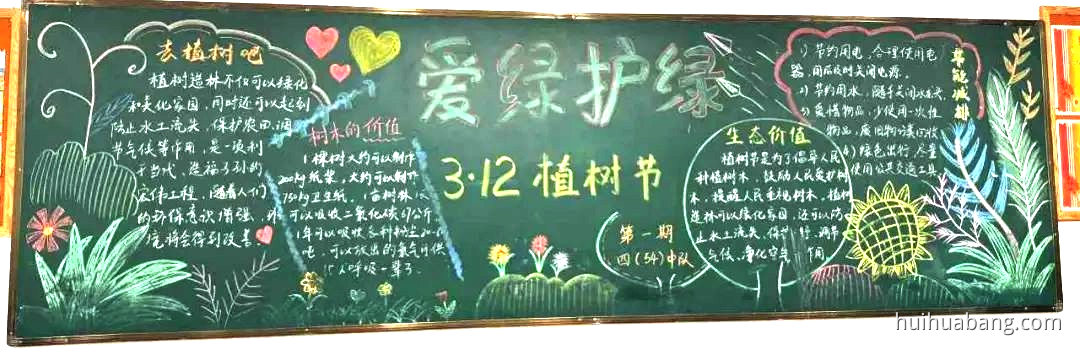 去植树吧
植树造林不仅可以绿化
和美化家园,同时还可以起到
防止水土流失,保护农田,调
节气候等作用,是一项利
于当代,造福子孙的
宏伟工程,随着人们
的环保意识增强,环
境将会得到改善。
树木的价值
1棵树大约可以制作
200kg纸浆,大约可以制作
750kg卫生纸,1亩树林
可以吸收二氧化碳67公斤,
1年可以吸收各种粉尘20-6
吨,可以放出的氧气可供
人呼吸一辈了。
爱绿护绿
3·12植树节
第一期
四(54)中队
生态价值
植树节是为了倡导人民
种植树木,鼓励人民爱护树
木,提醒人民重视树木,植树
造林可以绿化家园,还可以防
止水土流失,保护 调节
气候,净化空气 作用
节能减排
1)节约用电,合理使用电
器,用后及时关闭电源,
2)节约用水,随手关闭水龙头,
3)爱惜物品,少使用一次性
物品,废旧物分类回收
4)绿色出行,尽量
使用公共交通工具
huihuabang.com